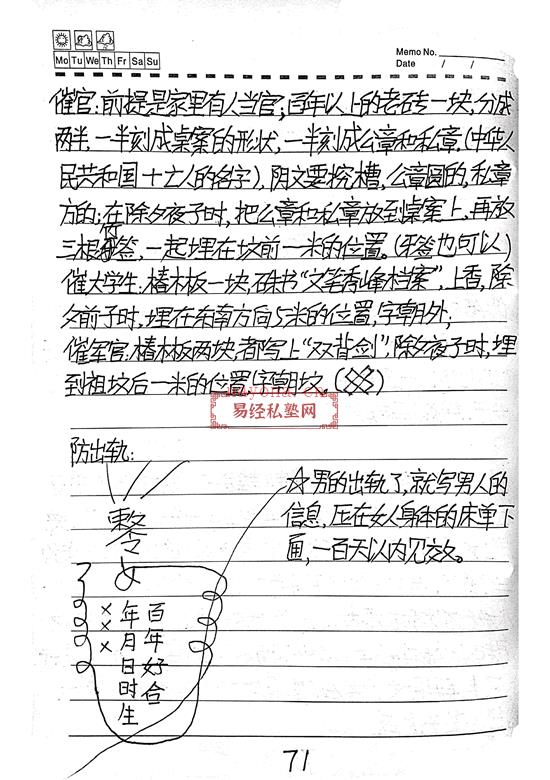 Memo No.
Mo Tu We Th Fr Sa Su
Date / /
催官:前提是家里有人当官;百年以上的老砖一块,分成
两半,一半刻成桌案的形状,一半刻成公章和私章.(中华人
民共和国十亡人的名字),阴文要挖槽,公章圆的,私章
方的;在除夕夜子时,把公章和私章放到桌案上,再放
竹
三根签,一起埋在坟前一米的位置。(牙签也可以)
催大学生:椿林板一块,砵书“文笔秀峰档案”,上香,除
夕前子时,埋在东南方向5米的位置,字朝外;
催军官:椿林板两块,都写上“双背剑”,除夕夜子时,埋
到祖坟后一米的位置,字朝坟。()
易经私塾网
防出轨:
☆男的出轨了,就写男人的
信息,压在女人身体的床单下
面,一百天以内见效。
女
百年好合
××年×月日时生
71